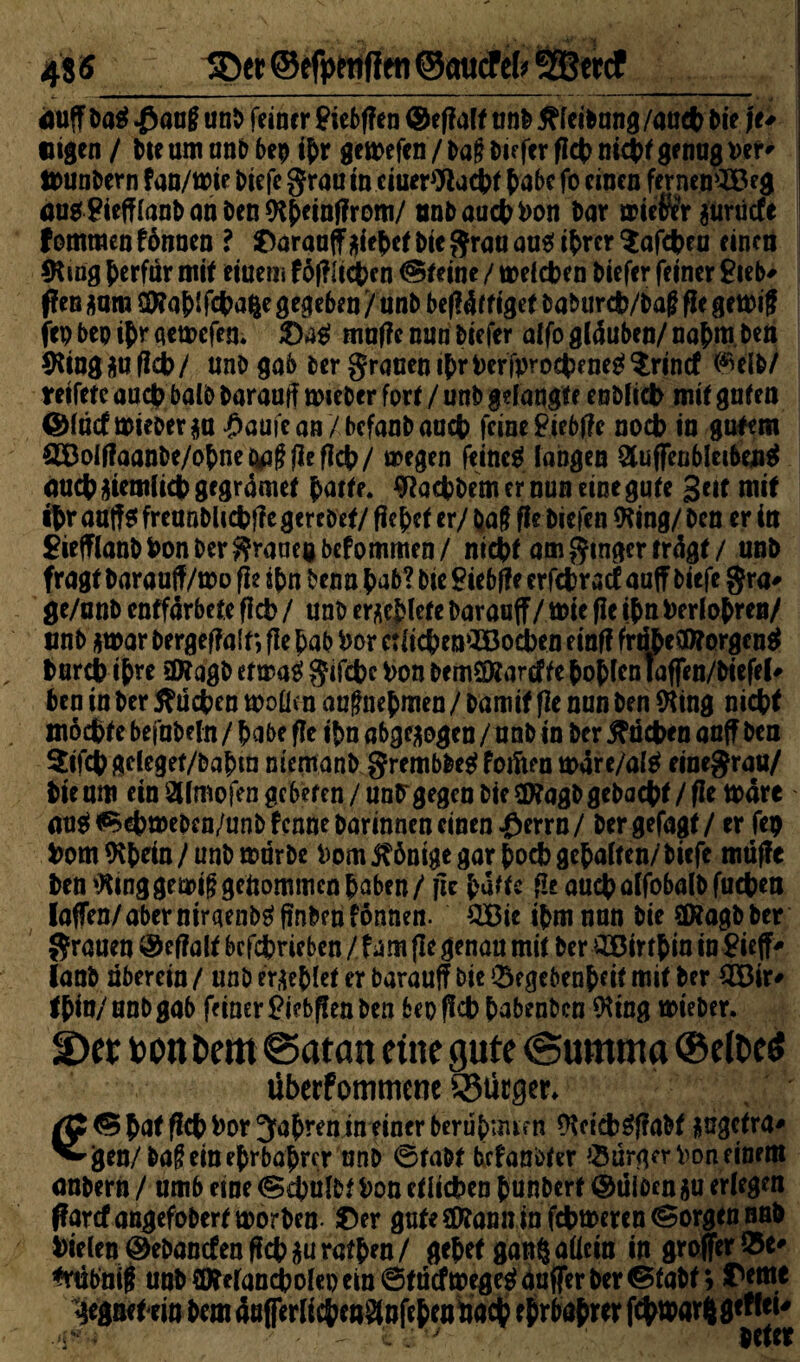 486 Der Gespenſten Gauckel-Werck
auff das Hauß und ſeiner Liebſten Geſtalt und Kleidung/auch die je-
nigen / die um und bey ihr geweſen / daß dieſer ſich nicht genug ver-
wundern kan/wie dieſe Frau in einer Nacht habe ſo einen fernen Weg
aus Liefflandt an den Rheinſtrom/ und auch von dar wieder zurücke
kommen können ? Darauff ziehet die Frau aus ihrer Taſchen einen
Ring herfür mit einem köſtlichen Steine / welchen dieſer ſeiner Lieb-
ſten zum Mahlſchatze gegeben / und beſtättiget dadurch/daß ſie gewiß
ſey bey ihr geweſen. Das muſte nun dieſer alſo gläuben/ nahm den
Ring zu ſich/ und gab der Frauen ihr verſprochenes Trinck Geld/
reiſete auch bald darauff wieder fort / und gelangte endlich mit guten
Glück wieder zu Hauſe an / befand auch ſeine Liebſte noch in gutem
Wolſtaande/ohne daß ſie ſich/ wegen ſeines langen Auſſenbleibens
auch ziemlich gegrämet hatte. Nachdem er nun eine gute Zeit mit
ihr auffs freundlichſte geredet/ ſiehet er/ daß ſie dieſen Ring/ den er in
Lieffland von der Frauen bekommen / nicht am Finger trägt / und
fragt darauff/wo ſie ihn denn hab? die Liebſte erſchrack auff dieſe Fra-
ge/und entfärbete ſich / und erzehlete darauff / wie ſie ihn verlohren/
und zwar dergeſtalt; ſie hab vor etlichen Wochen einſt frühe Morgens
durch ihre Magd etwas Fiſche von dem Marckte hohlen laſſen/dieſel-
ben in der Küchen wollen außnehmen / damit ſie nun den Ring nicht
möchte beſudeln / habe ſie ihn abgezogen / und in der Küchen auff den
Tiſch geleget/dahin niemand Frembdes kommen wäre/als eine Frau/
die um ein Almoſen gebeten / und gegen die Magd gedacht / ſie wäre
aus Schweden/und kenne darinnen einen Herrn / der geſagt / er ſey
vom Rhein / und würde vom Könige gar hoch gehalten/ dieſe müſte
den Ring gewiß genommen haben / ſie hätte ſie auch alſobald ſuchen
laſſen/ aber nirgends finden können. Wie ihm nun die Magd der
Frauen Geſtalt beſchrieben / kam ſie genau mit der Wirthin in Lieff-
land überein / und erzehlet er darauff die Begebenheit mit der Wir-
thin/ und gab ſeiner Liebſten den bey ſich habenden Ring wieder.
Der von dem Satan eine gute Summa Geldes
überkommene Bürger.
ES hat ſich vor Jahren in einer berühmten Reichsſtadt zugetra-
gen/ daß ein ehrbahrer und Stadt bekandter Bürger von einem
andern / umb eine Schuldt von etlichen hundert Gülden zu erlegen
ſtarck angefodert worden. Der gute Mann in ſchweren Sorgen und
vielen Gedancken ſich zu rathen/ gehet gantz allein in groſſer Be-
trübniß und Melancholey ein Stück weges auſſer der Stadt; Deme
begegnet ein dem äuſſerlichen Anſehen nach ehrbahrer ſchwartz geklei-
deter